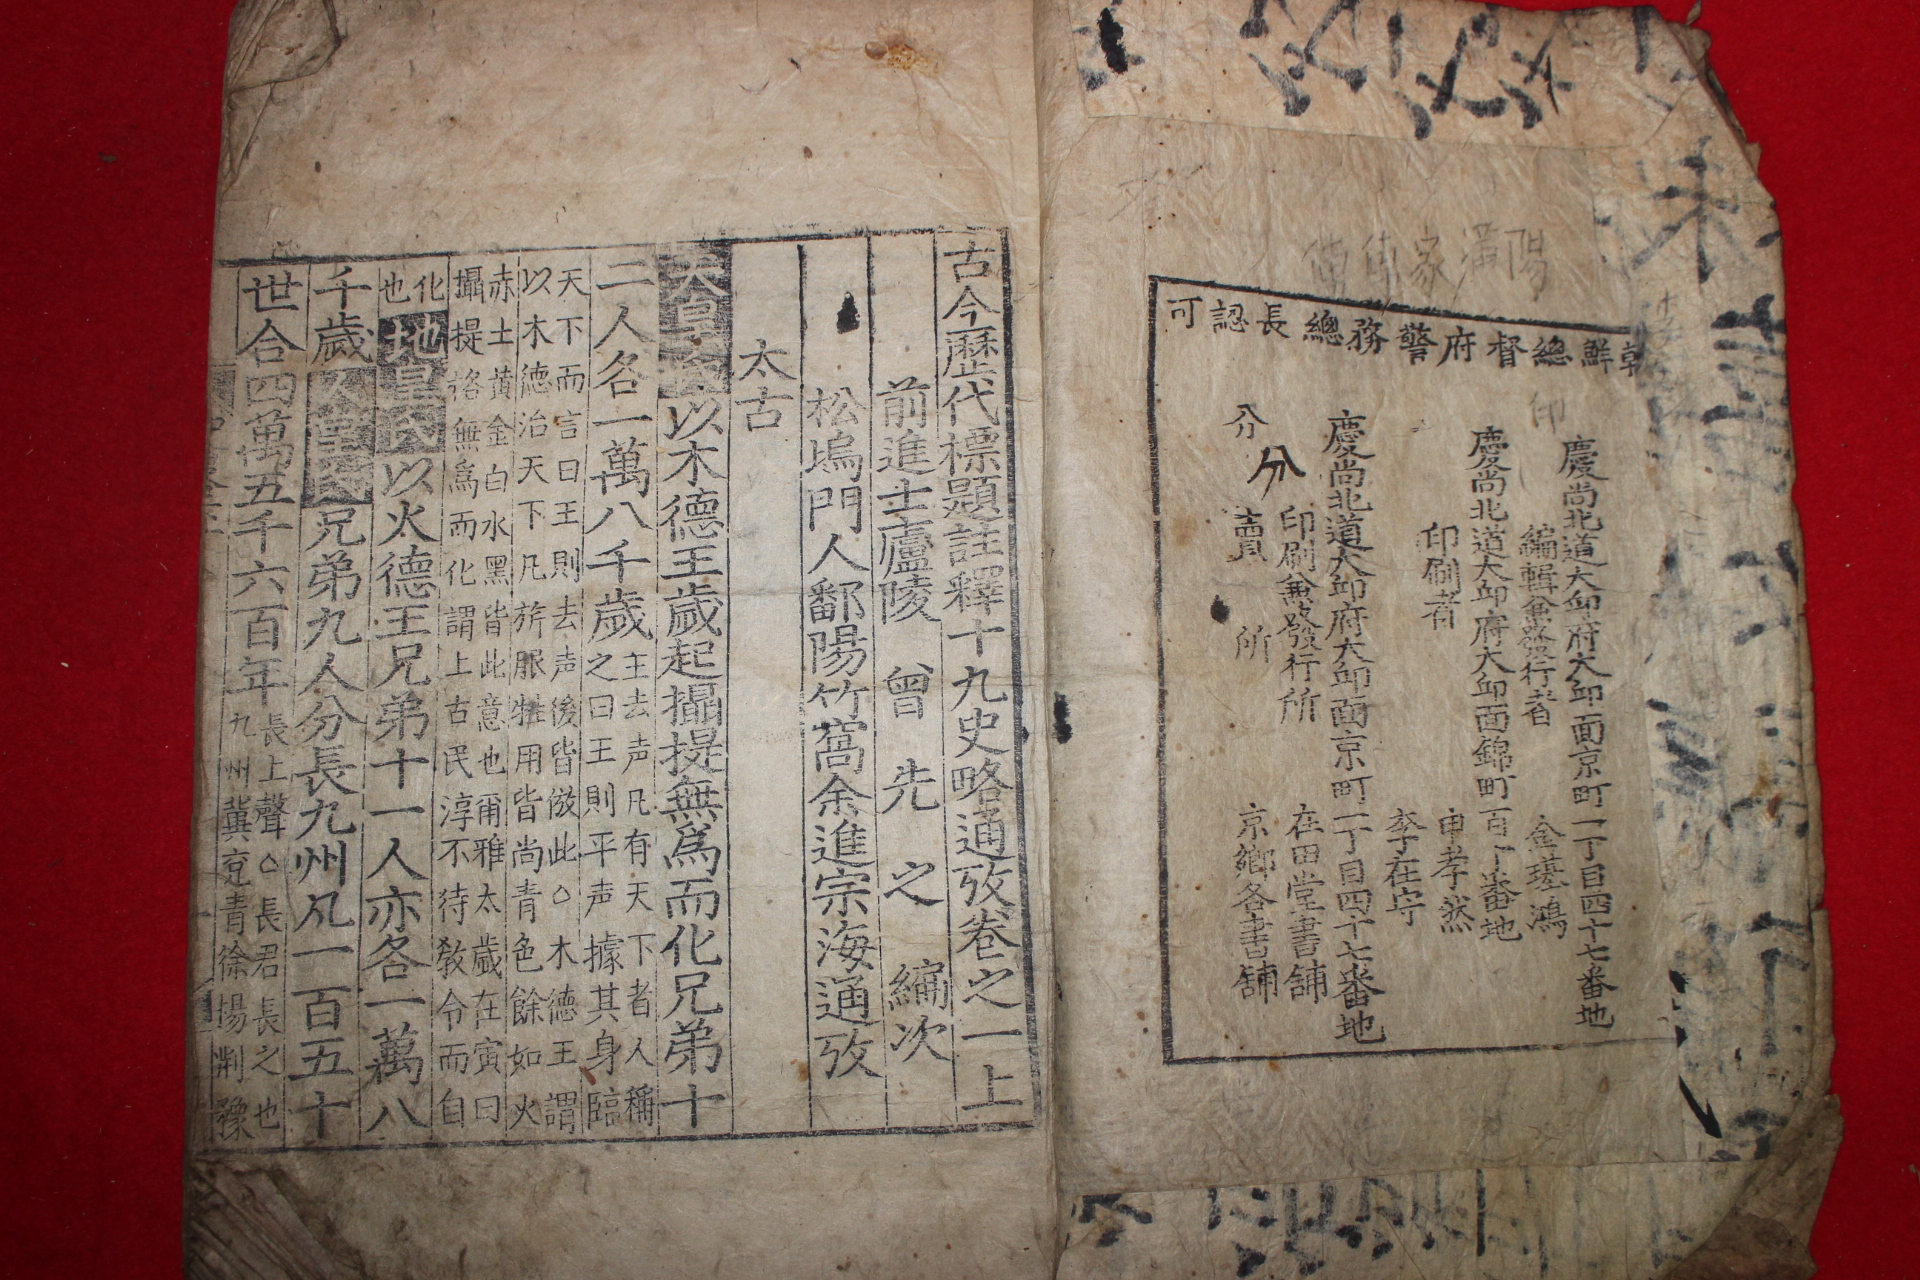 朝鮮總督府警務總長認可
慶尚北道大邱府大邱面京町一丁目四十七番地
編輯兼發行者 金璂鴻
慶尚北道大邱府大邱面錦町百丁番地
印刷者 申孝然
李在守
慶尚北道大邱府大邱面京町一丁目四十七番地
印刷兼發行所 在田堂書舖
分賣所 京鄉各書舖
分
古今歷代標題註釋十九史略通攷卷之一上
前進士廬陵 曾先之 編次
松塢門人鄱陽竹窩余進宗海通攷
太古
天皇氏以木德王歲起攝提無爲而化兄弟十
二人各一萬八千歲主去声凡有天下者人稱之曰王則平声據其身臨
天下而言曰王則去声後皆倣此○木德王謂以木德治天下凡旂服牲用皆尚青色餘如火
赤土黄金白水黑皆此意也爾雅太歲在寅曰攝提格無爲而化謂上古民淳不待敎令而自
化也地皇氏以火德王兄弟十一人亦各一萬八
千歲人皇氏兄弟九人分長九州凡一百五十
世合四萬五千六百年長上聲○長君長之也九州冀兗青徐揚荆豫